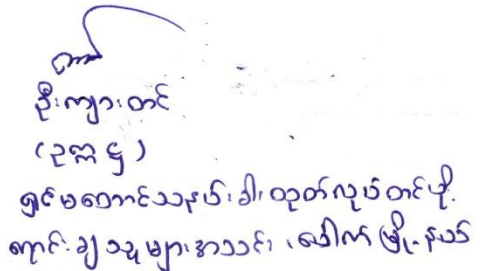 ဦးကျားတင်
(ဥက္ကဋ္ဌ)
ရှင်မတောင်သနပ်ခါး ထုတ်လုပ်တင်ပို့
ရောင်းချသူများအသင်း၊ ပေါက်မြို့နယ်